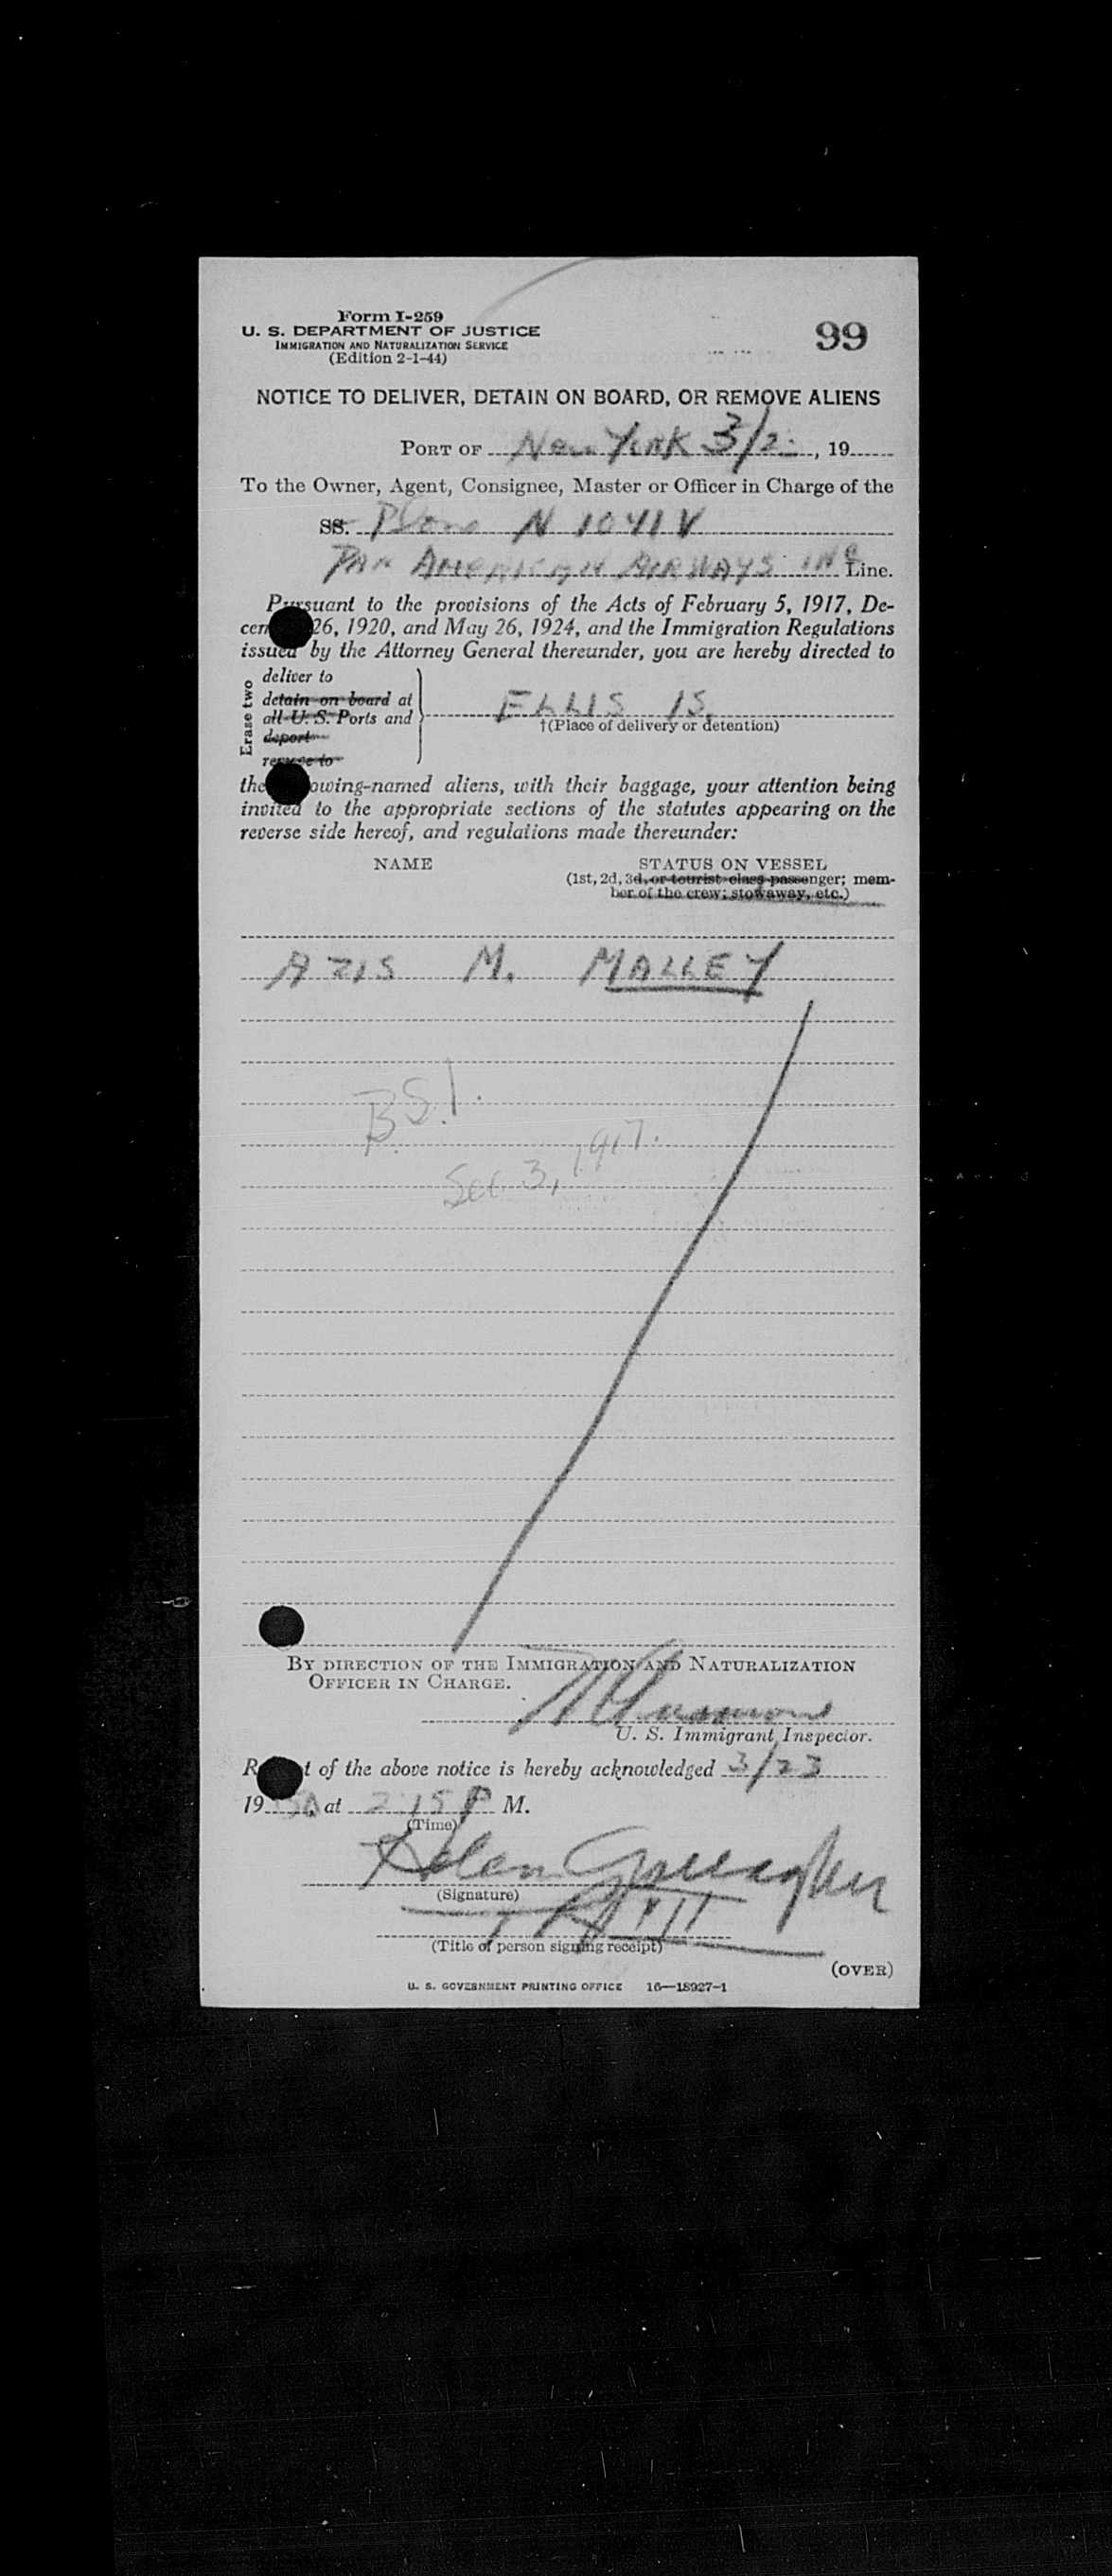 Form I-259
U. S. DEPARTMENT OF JUSTICE
IMMIGRATION AND NATURALIZATION SERVICE
(Edition 2-1-44)
99
NOTICE TO DELIVER, DETAIN ON BOARD, OR REMOVE ALIENS
PORT OF New York 3/2 , 19
To the Owner, Agent, Consignee, Master or Officer in Charge of the
SS. Plane N 1041V
PAN AMERICAN AIRWAYS INC Line.
Pursuant to the provisions of the Acts of February 5, 1917, De-
cem 26, 1920, and May 26, 1924, and the Immigration Regulations
issued by the Attorney General thereunder, you are hereby directed to
Erase two
deliver to
detain on board at
all U. S. Ports and
deport
remove to
ELLIS IS.
†(Place of delivery or detention)
the owing-named aliens, with their baggage, your attention being
invited to the appropriate sections of the statutes appearing on the
reverse side hereof, and regulations made thereunder:
NAME STATUS ON VESSEL
(1st, 2d, 3d, or tourist class passenger; mem-
ber of the crew; stowaway, etc.)
AZIS M. MALLEY
B.S.I.
Sec. 3, 1917.
BY DIRECTION OF THE IMMIGRATION AND NATURALIZATION
OFFICER IN CHARGE.
U. S. Immigrant Inspector.
R t of the above notice is hereby acknowledged 3/23
1950, at 2:15 P M.
(Time)
Helen
(Signature)
(Title of person signing receipt)
(OVER)
U. S. GOVERNMENT PRINTING OFFICE 16—18927-1